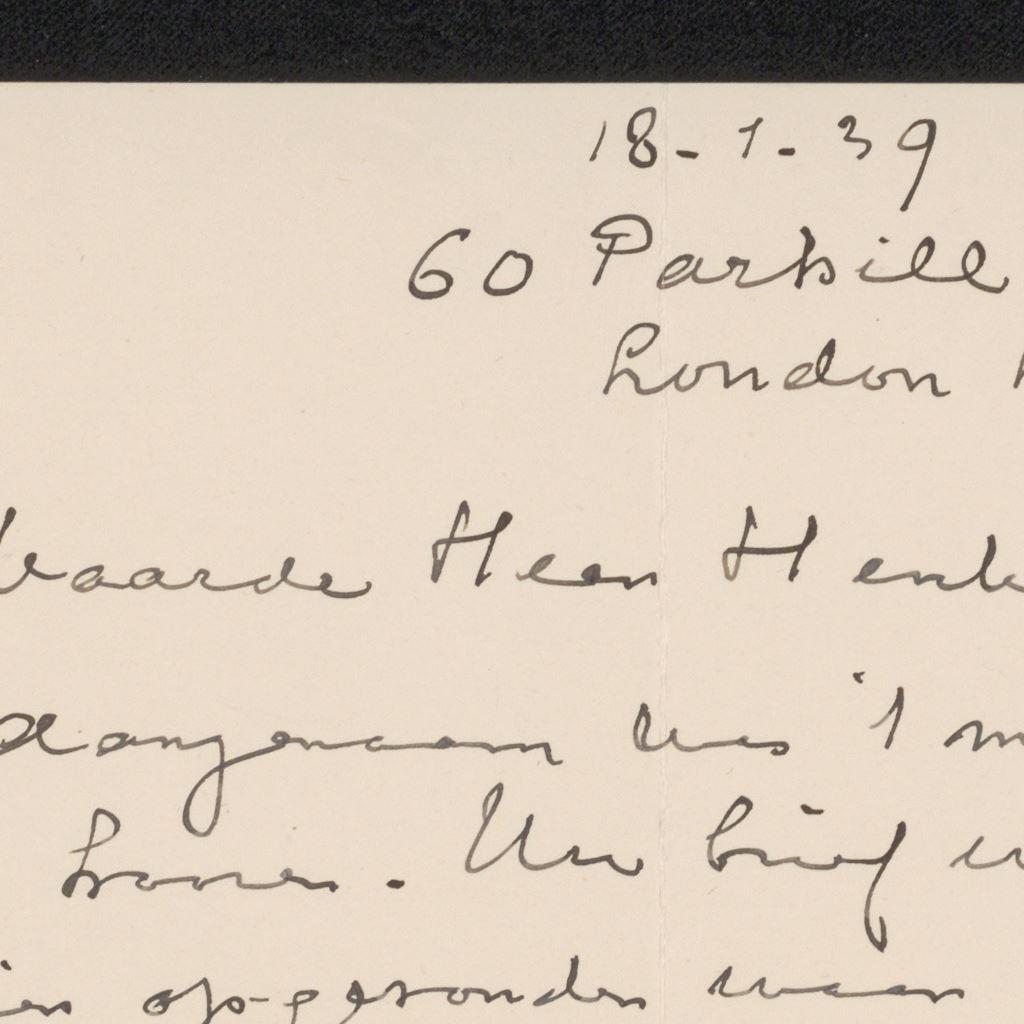 18-1-39
60 Parkill
London
Waarde Heer Henk
Aangenaam was 't m
hooren. Uw brief w
op-gezonden waar